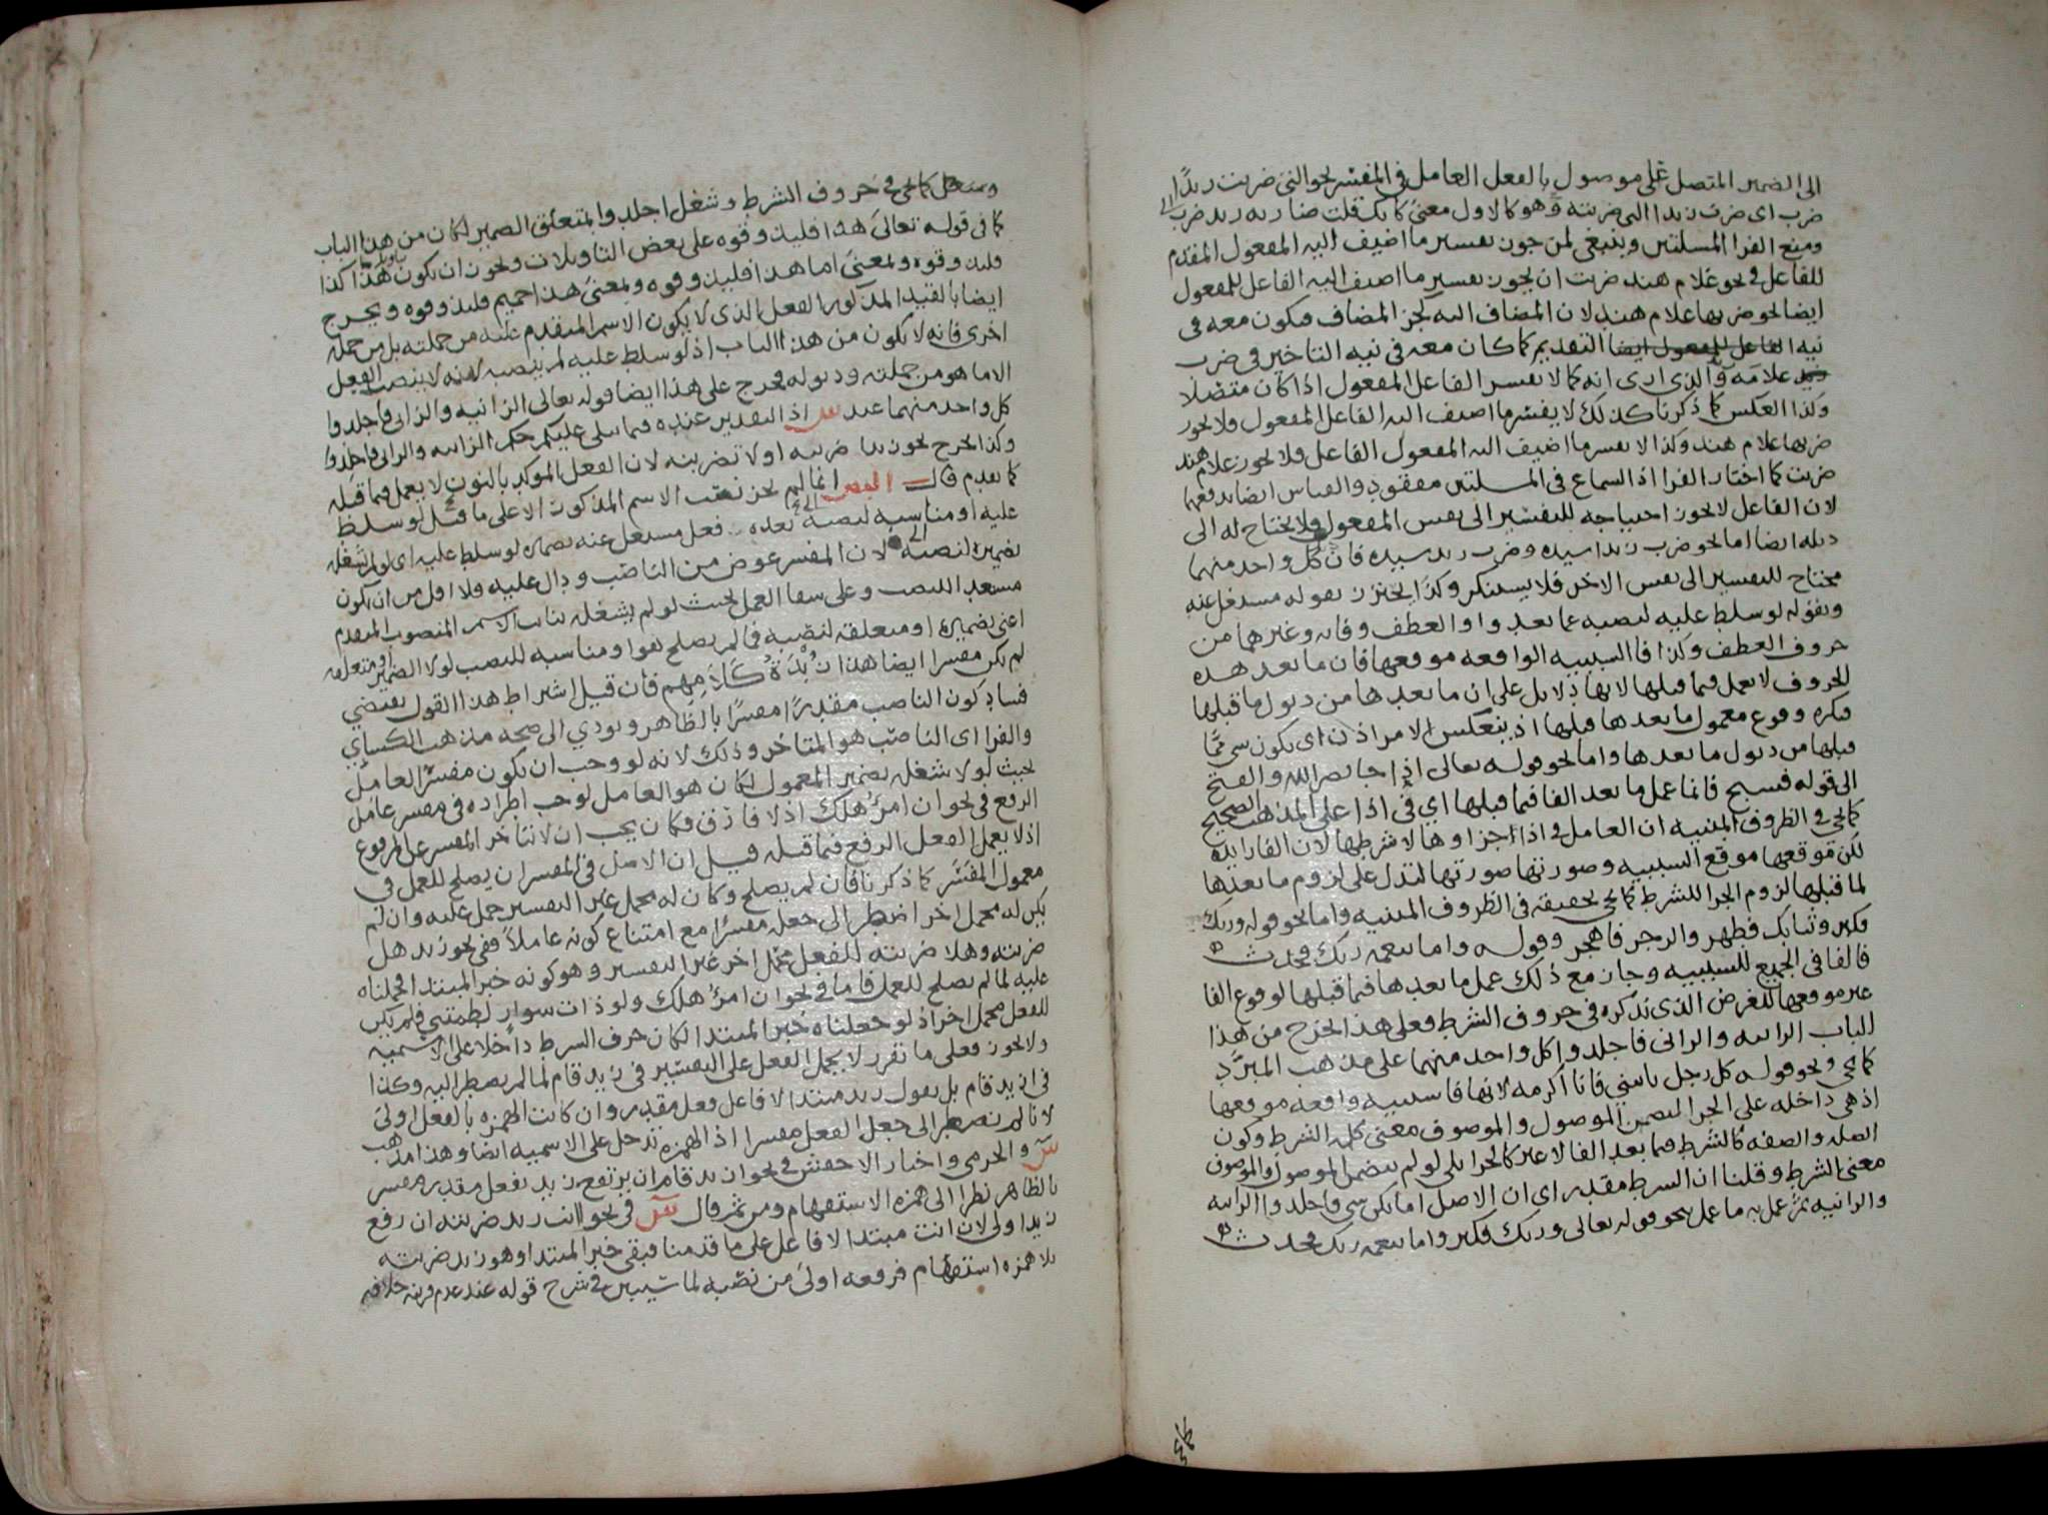 الى الضمير المتصل على موصول بالفعل العامل في المفسر نحو التي ضربت زيدًا
ضرب اى ضربت زيدا التى ضربته وهو كالاول معنى كانك قلت ضاربه زيد ضرب
ومنع الفرا المسلتين وينبغى لمن جوز تفسير ما اضيف اليه المفعول المقدم
للفاعل في نحو غلام هند ضربت ان يجوز تفسير ما اضيف اليه الفاعل للمفعول
ايضا نحو ضربها غلام هند لان المضاف اليه كجز المضاف فيكون معه فى
نيه التقديم كما كان معه فى نيه التاخير فى ضرب
غلامه والذى ارى انه كما لا يفسر الفاعل المفعول اذا كان متصلا
وكذا العكس كما ذكرنا كذلك لا يفسر ما اضيف اليه الفاعل المفعول فلا يجوز
ضربها غلام هند وكذا لا يفسر ما اضيف اليه المفعول الفاعل فلا يجوز غلام هند
ضربت كما اختار الفرا اذ السماع فى المسلتين مفقود والقياس ايضا يدفعهما
لان الفاعل لا يجوز احتياجه للتفسير الى نفس المفعول ولا يحتاج له الى
ذيله ايضا اما نحو ضرب زيدا سيده وضرب زيد سيده فان كل واحد منهما
محتاج للتفسير الى نفس الاخر فلا يستنكر وكذا يحترز بقوله مشتغل عنه
وبقوله لو سلط عليه لنصبه عما بعد واو العطف وفايه وغيرهما من
حروف العطف وكذا فا السببيه الواقعه موقعها فان ما بعد هذه
الحروف لا يعمل فيما قبلها لانها دلايل على ان ما بعدها من ذيول ما قبلها
فكره وقوع معمول ما بعدها قبلها اذ ينعكس الامر اذن اى يكون شى مما
قبلها من ذيول ما بعدها واما نحو قوله تعالى اذا جا نصر الله والفتح
الى قوله فسبح فانما عمل ما بعد الفا فيما قبلها اي في اذا على المذهب الصحيح
كما يجى فى الظروف المبنيه ان العامل فى اذا جزاوها لا شرطها لان الفا زايده
لكن موقعها موقع السببيه وصورتها صورتها لتدل على لزوم ما بعدها
لما قبلها لزوم الجزا للشرط كما يجى تحقيقه فى الظروف المبنيه واما نحو قوله وربك
فكبر وثيابك فطهر والرجز فاهجر وقوله واما بنعمه ربك فحدث
فالفا فى الجميع للسببيه وجاز مع ذلك عمل ما بعدها فيما قبلها لوقوع الفا
غير موقعها للغرض الذى نذكره فى حروف الشرط فعلى هذا خرج من هذا
الباب الزانيه والزانى فاجلدوا كل واحد منهما على مذهب المبرد
كما يجى ونحو قوله كل رجل ياتينى فانا اكرمه لانها فا سببيه واقعه موقعها
اذ هى داخله على الجزا لتضمن الموصول والموصوف معنى كلمه الشرط وكون
الصله والصفه كالشرط فما بعد الفا لا غير كالجزا بلى لو لم يتضمن الموصول والموصوف
معنى الشرط وقلنا ان الشرط مقدر اى ان الاصل اما يكن شى فاجلدوا الزانيه
والزانيه ثم عمل به ما عمل بنحو قوله تعالى وربك فكبر واما بنعمه ربك فحدث
كما يجى فى حروف الشرط وشغل اجلدوا بمتعلق الضمير لكان من هذا الباب
كما فى قوله تعالى هذا فليذوقوه على بعض التاويلات ويجوز ان يكون هذا كذا
فليذوقوه وبمعنى اما هذا فليذوقوه وبمعنى هذا حميم فليذوقوه ويخرج
ايضا بالقيد المذكور الفعل الذى لا يكون الاسم المتقدم عليه من جملته بل من جمله
اخرى فانه لا يكون من هذا الباب اذ لو سلط عليه لم ينصبه لانه لا ينصب الفعل
الا ما هو من جملته وذيوله فخرج على هذا ايضا قوله تعالى الزانيه والزانى فاجلدوا
كل واحد منهما عند س اذ التقدير عنده فيما يتلى عليكم حكم الزانيه والزانى فاجلدوا
وكذا يخرج نحو زيدا ضربنه او لا تضربنه لان الفعل الموكد بالنون لا يعمل فيما قبله
كما تقدم قال المص انما لم يجز نصب الاسم المذكور الا على ما قيل لو سلط
عليه او مناسبه لنصبه اى بعده فعل مشتغل عنه بضميره لو سلط عليه اى لو لم يشغله
بضميره لنصبه لان المفسر عوض من الناصب ودال عليه فلا اقل من ان يكون
مستعد النصب وعلى شفا العمل بحيث لو لم يشغله نايب الاسم المنصوب المتقدم
اعنى بضميره او متعلقه لنصبه فما لم يصلح هو او مناسبه للنصب لولا الضمير او متعلقه
لم يكن مفسرا ايضا هذا زبدة كلامهم فان قيل اشتراط هذا القول يقتضي
فساد كون الناصب مقدرًا مفسرًا بالظاهر ويودي الى صحه مذهب الكساي
والفرا اى الناصب هو المتاخر وذلك لانه لو وجب ان يكون مفسر العامل
بحيث لولا شغله بضمير المعمول لكان هو العامل لوجب اطراده فى مفسر عامل
الرفع فى نحو ان امرؤ هلك اذ لا فارق فكان يجب ان لا يتاخر المفسر عن المرفوع
اذ لا يعمل الفعل الرفع فيما قبله قيل ان الاصل فى المفسر ان يصلح للعمل فى
معمول المفسر كما ذكرنا فان لم يصلح وكان له محمل غير التفسير حمل عليه وان لم
يكن له محمل اخر اضطر الى جعله مفسرًا مع امتناع كونه عاملاً ففى نحو زيد هل
ضربته وهلا ضربته للفعل محمل اخر غير التفسير وهو كونه خبر المبتدا فحملناه
عليه لما لم يصلح للعمل فاما فى نحو ان امرؤ هلك ولو ذات سوار لطمتني فلم يكن
للفعل محمل اخر اذ لو جعلناه خبر المبتدا لكان حرف الشرط داخلا على الاسميه
ولا يجوز فعلى ما تقرر لا يحمل الفعل على التفسير فى زيد قام لما لم يضطر اليه وكذا
فى ازيد قام بل نقول زيد مبتدا لا فاعل فعل مقدر وان كانت الهمزه بالفعل اولى
لانا لم نضطر الى جعل الفعل مفسرا اذ الهمزه تدخل على الاسميه ايضا وهذا مذهب
س والجرمى واختار الاخفش فى نحو ازيد قام ان يرتفع زيد بفعل مقدر مفسر
بالظاهر نظرا الى همزه الاستفهام ومن ثم قال س فى نحو اانت زيد ضربته ان رفع
زيد اولى لان انت مبتدا لا فاعل على ما قدمنا فبقى خبر المبتدا وهو زيد ضربته
بلا همزه استفهام فرفعه اولى من نصبه لما سيبين فى شرح قوله عند عدم قرينه خلافه